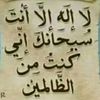 لا إله إلا أنت
سبحانك إني
كنت من
الظالمين